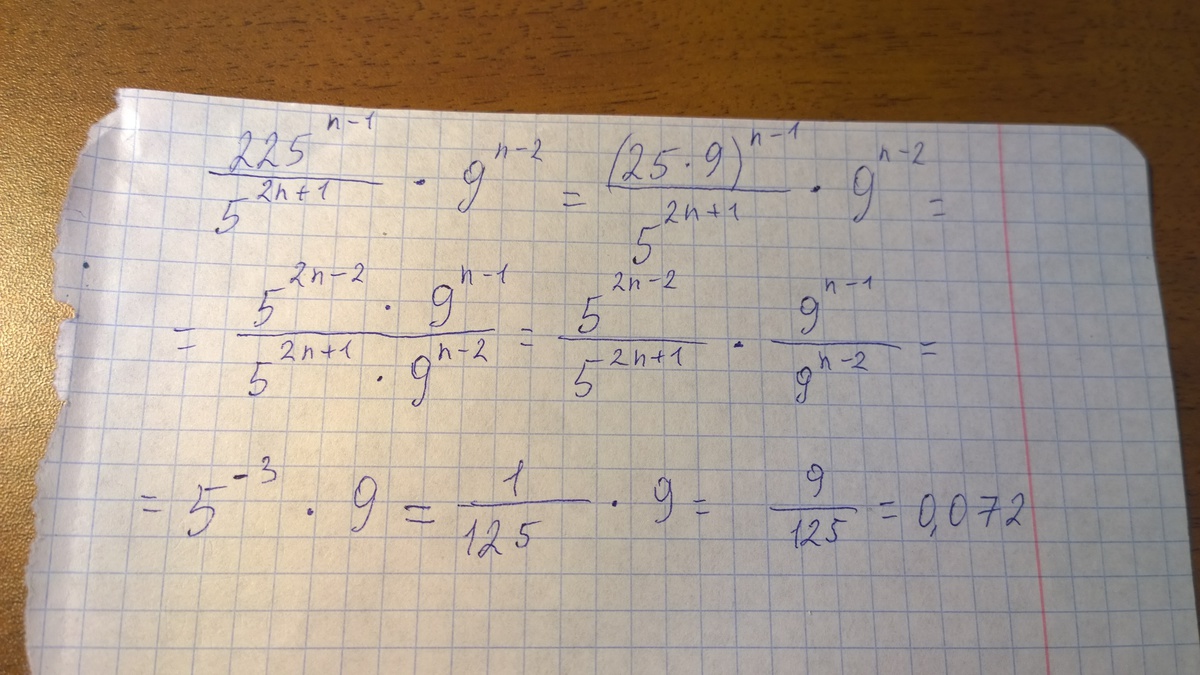 225^(n-1) / 5^(2n+1) · 9^(n-2) = (25·9)^(n-1) / 5^(2n+1) · 9^(n-2) =
= 5^(2n-2) · 9^(n-1) / 5^(2n+1) · 9^(n-2) = 5^(2n-2) / 5^(2n+1) · 9^(n-1) / 9^(n-2) =
= 5^(-3) · 9 = 1/125 · 9 = 9/125 = 0,072